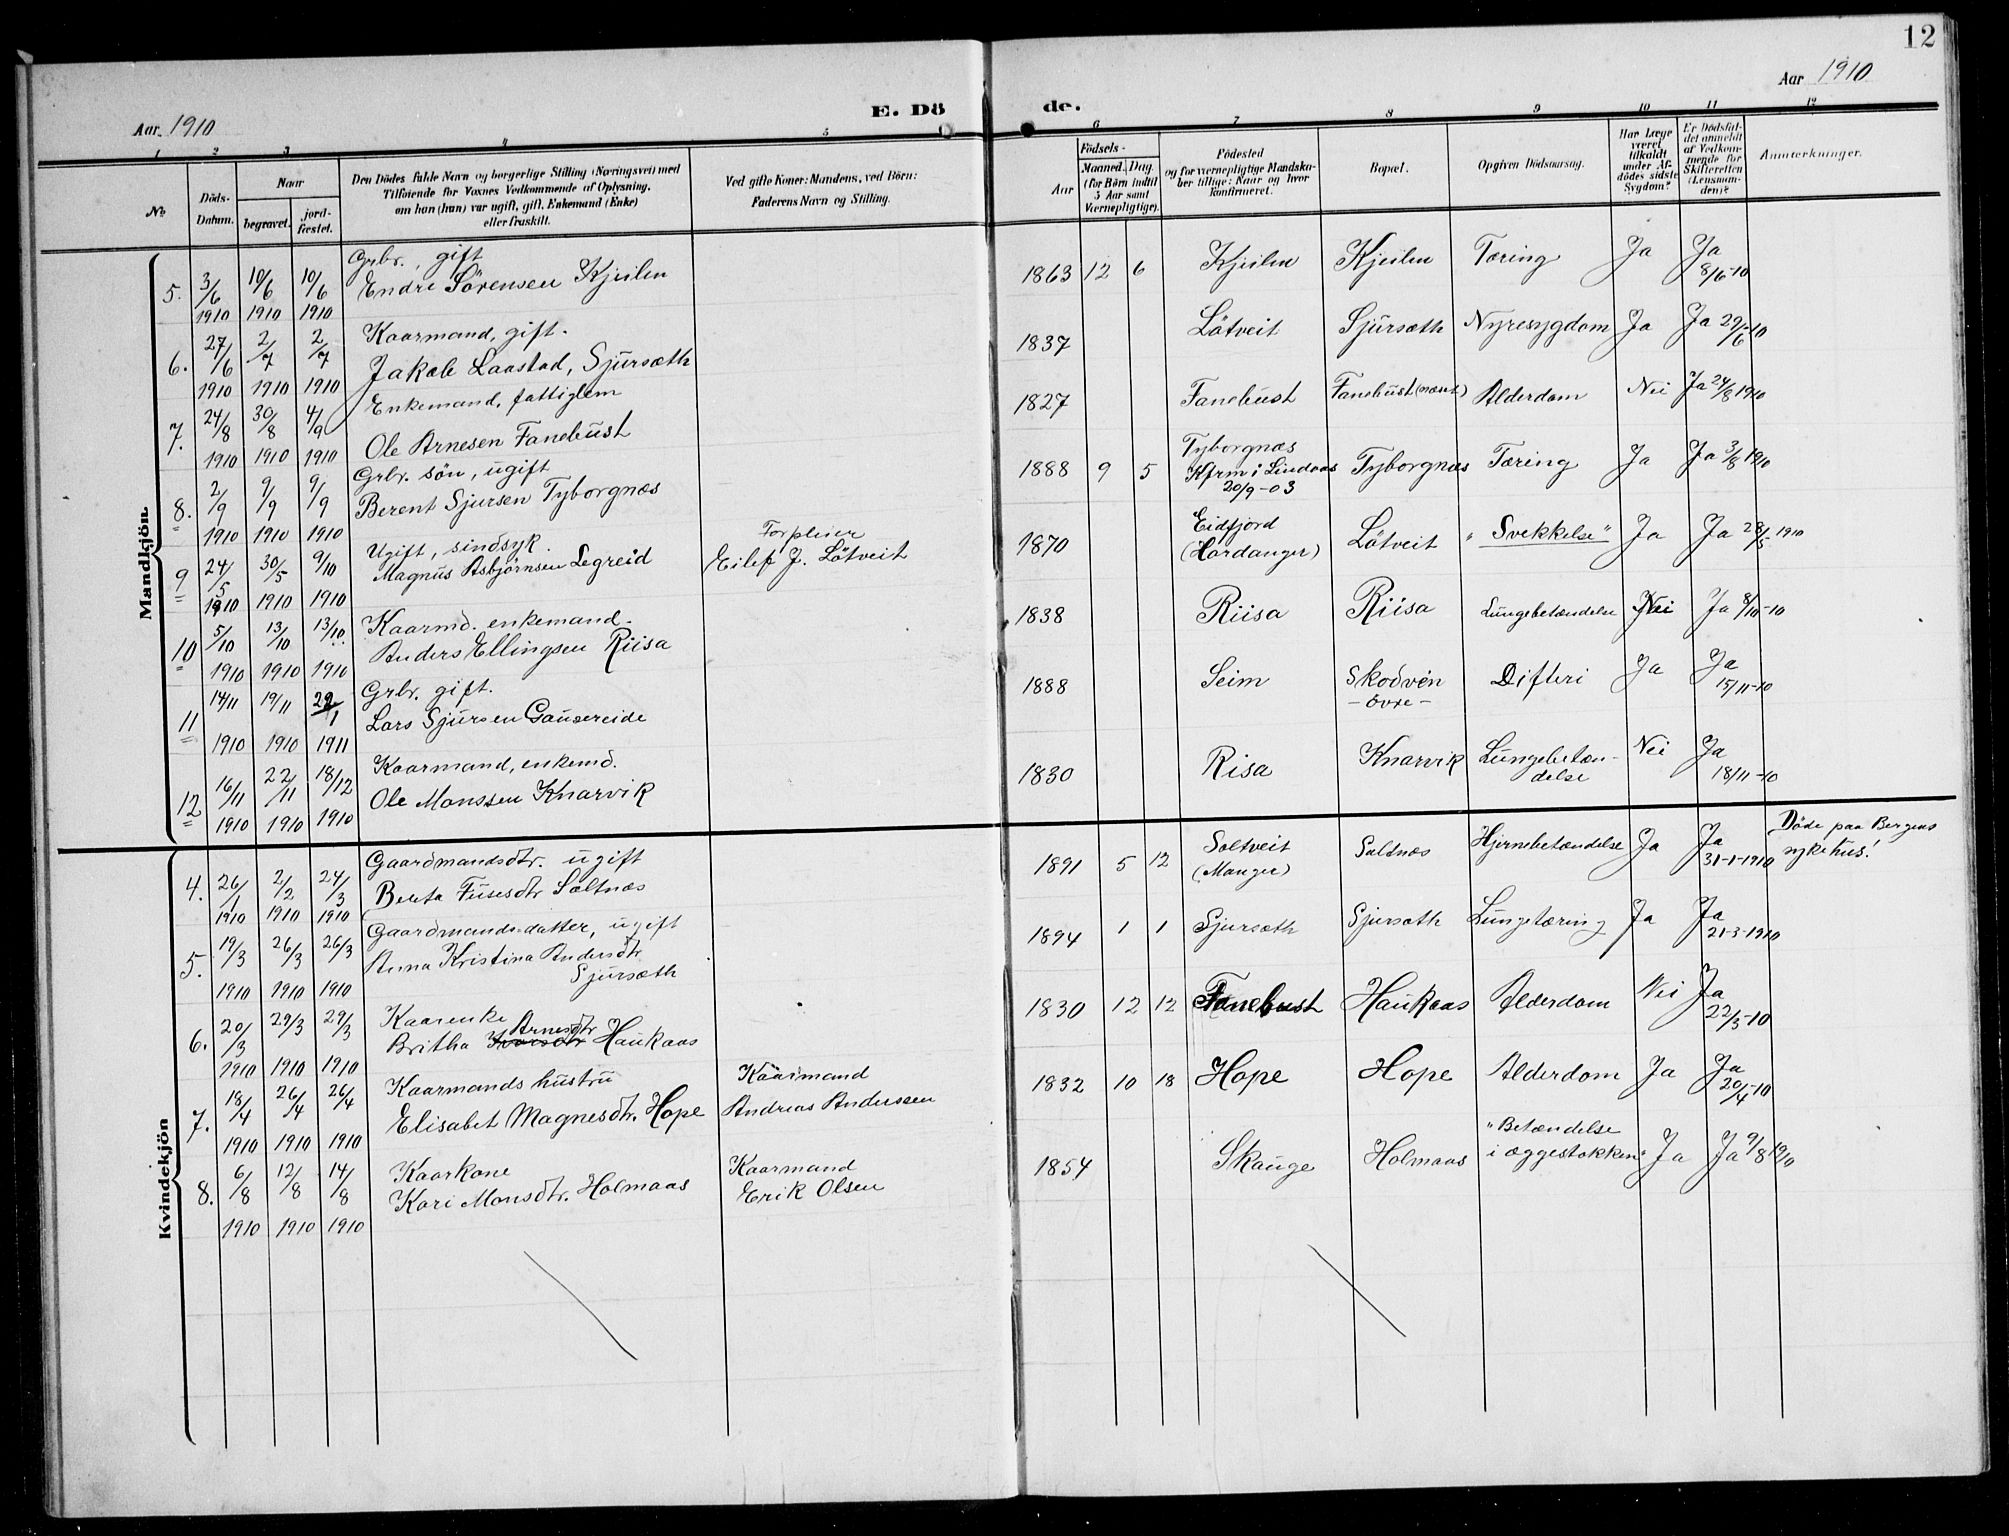 12
Aar 1910
E. Dö de.
Aar 1910
1 2 3 4 5 6 7 8 9 10 11 12
No
Döds-
Datum.
Naar
begravet.
jord-
fæstet.
Den Dödes fulde Navn og borgerlige Stilling (Næringsvei) med
Tilföiende for Voxnes Vedkommende af Oplysning,
om han (hun) var ugift, gift, Enkemand (Enke)
eller fraskilt.
Ved gifte Koner: Mandens, ved Börn:
Faderens Navn og Stilling.
Födsels-
Aar
Maaned. Dag.
(for Börn indtil
5 Aar samt
Værnepligtige).
Födested
og for værnepligtige Mandska-
ber tillige: Naar og hvor
konfirmeret.
Bopæl.
Opgiven Dödsaarsag.
Har Læge
været
tilkaldt
under Af-
dödes sidste
Sygdom?
Er Dödsfal-
det anmeldt
af Vedkom-
mende for
Skifteretten
(Lensman-
den)?
Anmærkninger.
Mandkjön
Grbr., gift
5. 3/6 10/6 10/6 Endre Sörensen Kjeilen 1863 12 6 Kjeilen Kjeilen Tæring Ja Ja
8/6-10
1910 1910 1910
Kaarmand, gift.
6. 27/6 2/7 2/7 Jakob Laastad, Sjursæth 1837 Lötveit Sjursæth Nyresygdom Ja Ja 29/6-10
1910 1910 1910
Enkemand, fattiglem
7. 24/8 30/8 4/9 Ole Arnesen Fanebust 1827 Fanebust Fanebust Alderdom Nei Ja 24/8 1910
1910 1910 1910
Grbr. sön, ugift
8. 2/9 9/9 9/9 Berent Sjursen Tyborgnæs 1888 9 5 Tyborgnæs
Kfrm i Lindaas
20/9-03
Tyborgnæs Tæring Ja Ja 3/8 1910
1910 1910 1910
Ugift, sindsyk.
9 24/5 30/5 9/10 Magnus Asbjørnsen Legreid
Forpleier
Eilef J. Lötveit
1870 Eidfjord
(Hardanger)
Lötveit "Svekkelse" Ja Ja 28/5 1910
1910 1910 1910
Kaarmd. enkemand.
10 5/10 13/10 13/10 Anders Ellingsen Riisa 1838 Riisa Riisa Lungebetændelse Nei Ja 8/10-10
1910 1910 1910
Grbr. gift.
11 14/11 19/11 22/1 Lars Sjursen Gausereide 1888 Seim Skodvin
- övre -
Difteri Ja Ja
15/11-10
1910 1910 1911
Kaarmand, enkemd.
12 16/11 22/11 18/12 Ole Monssen Knarvik 1830 Risa Knarvik Lungebetæn-
delse
Nei Ja
18/11-10
1910 1910 1910
Kvindekjön
Gaardmandsdtr. ugift
4. 26/1 2/2 24/3 Berta Fusesdtr Saltnæs 1891 5 12 Soltveit
(Manger)
Saltnæs Hjernebetændelse Ja Ja
31-1-1910
Döde paa Bergens
sykehus!
1910 1910 1910
Gaardmandsdatter, ugift
5. 19/3 26/3 26/3 Anna Kristina Andersdtr
Sjursæth
1894 1 1 Sjursæth Sjursæth Lungetæring Ja Ja
21-3-1910
1910 1910 1910
Kaarenke
6. 20/3 29/3 29/3 Britha Arnesdtr Haukaas 1830 12 12 Fanebust Haukaas Alderdom Nei Ja
22/3-10
1910 1910 1910
Kaarmands hustru
7. 18/4 26/4 26/4 Elisabet Magnesdtr. Hope
Kaarmand
Andreas Anderssen
1832 10 18 Hope Hope Alderdom Ja Ja
20/4-10
1910 1910 1910
Kaarkone
8. 6/8 12/8 14/8 Kari Monsdtr. Holmaas
Kaarmand
Erik Olsen
1854 Skauge Holmaas "Betændelse
i æggestokken" Ja Ja 9/8 1910
1910 1910 1910